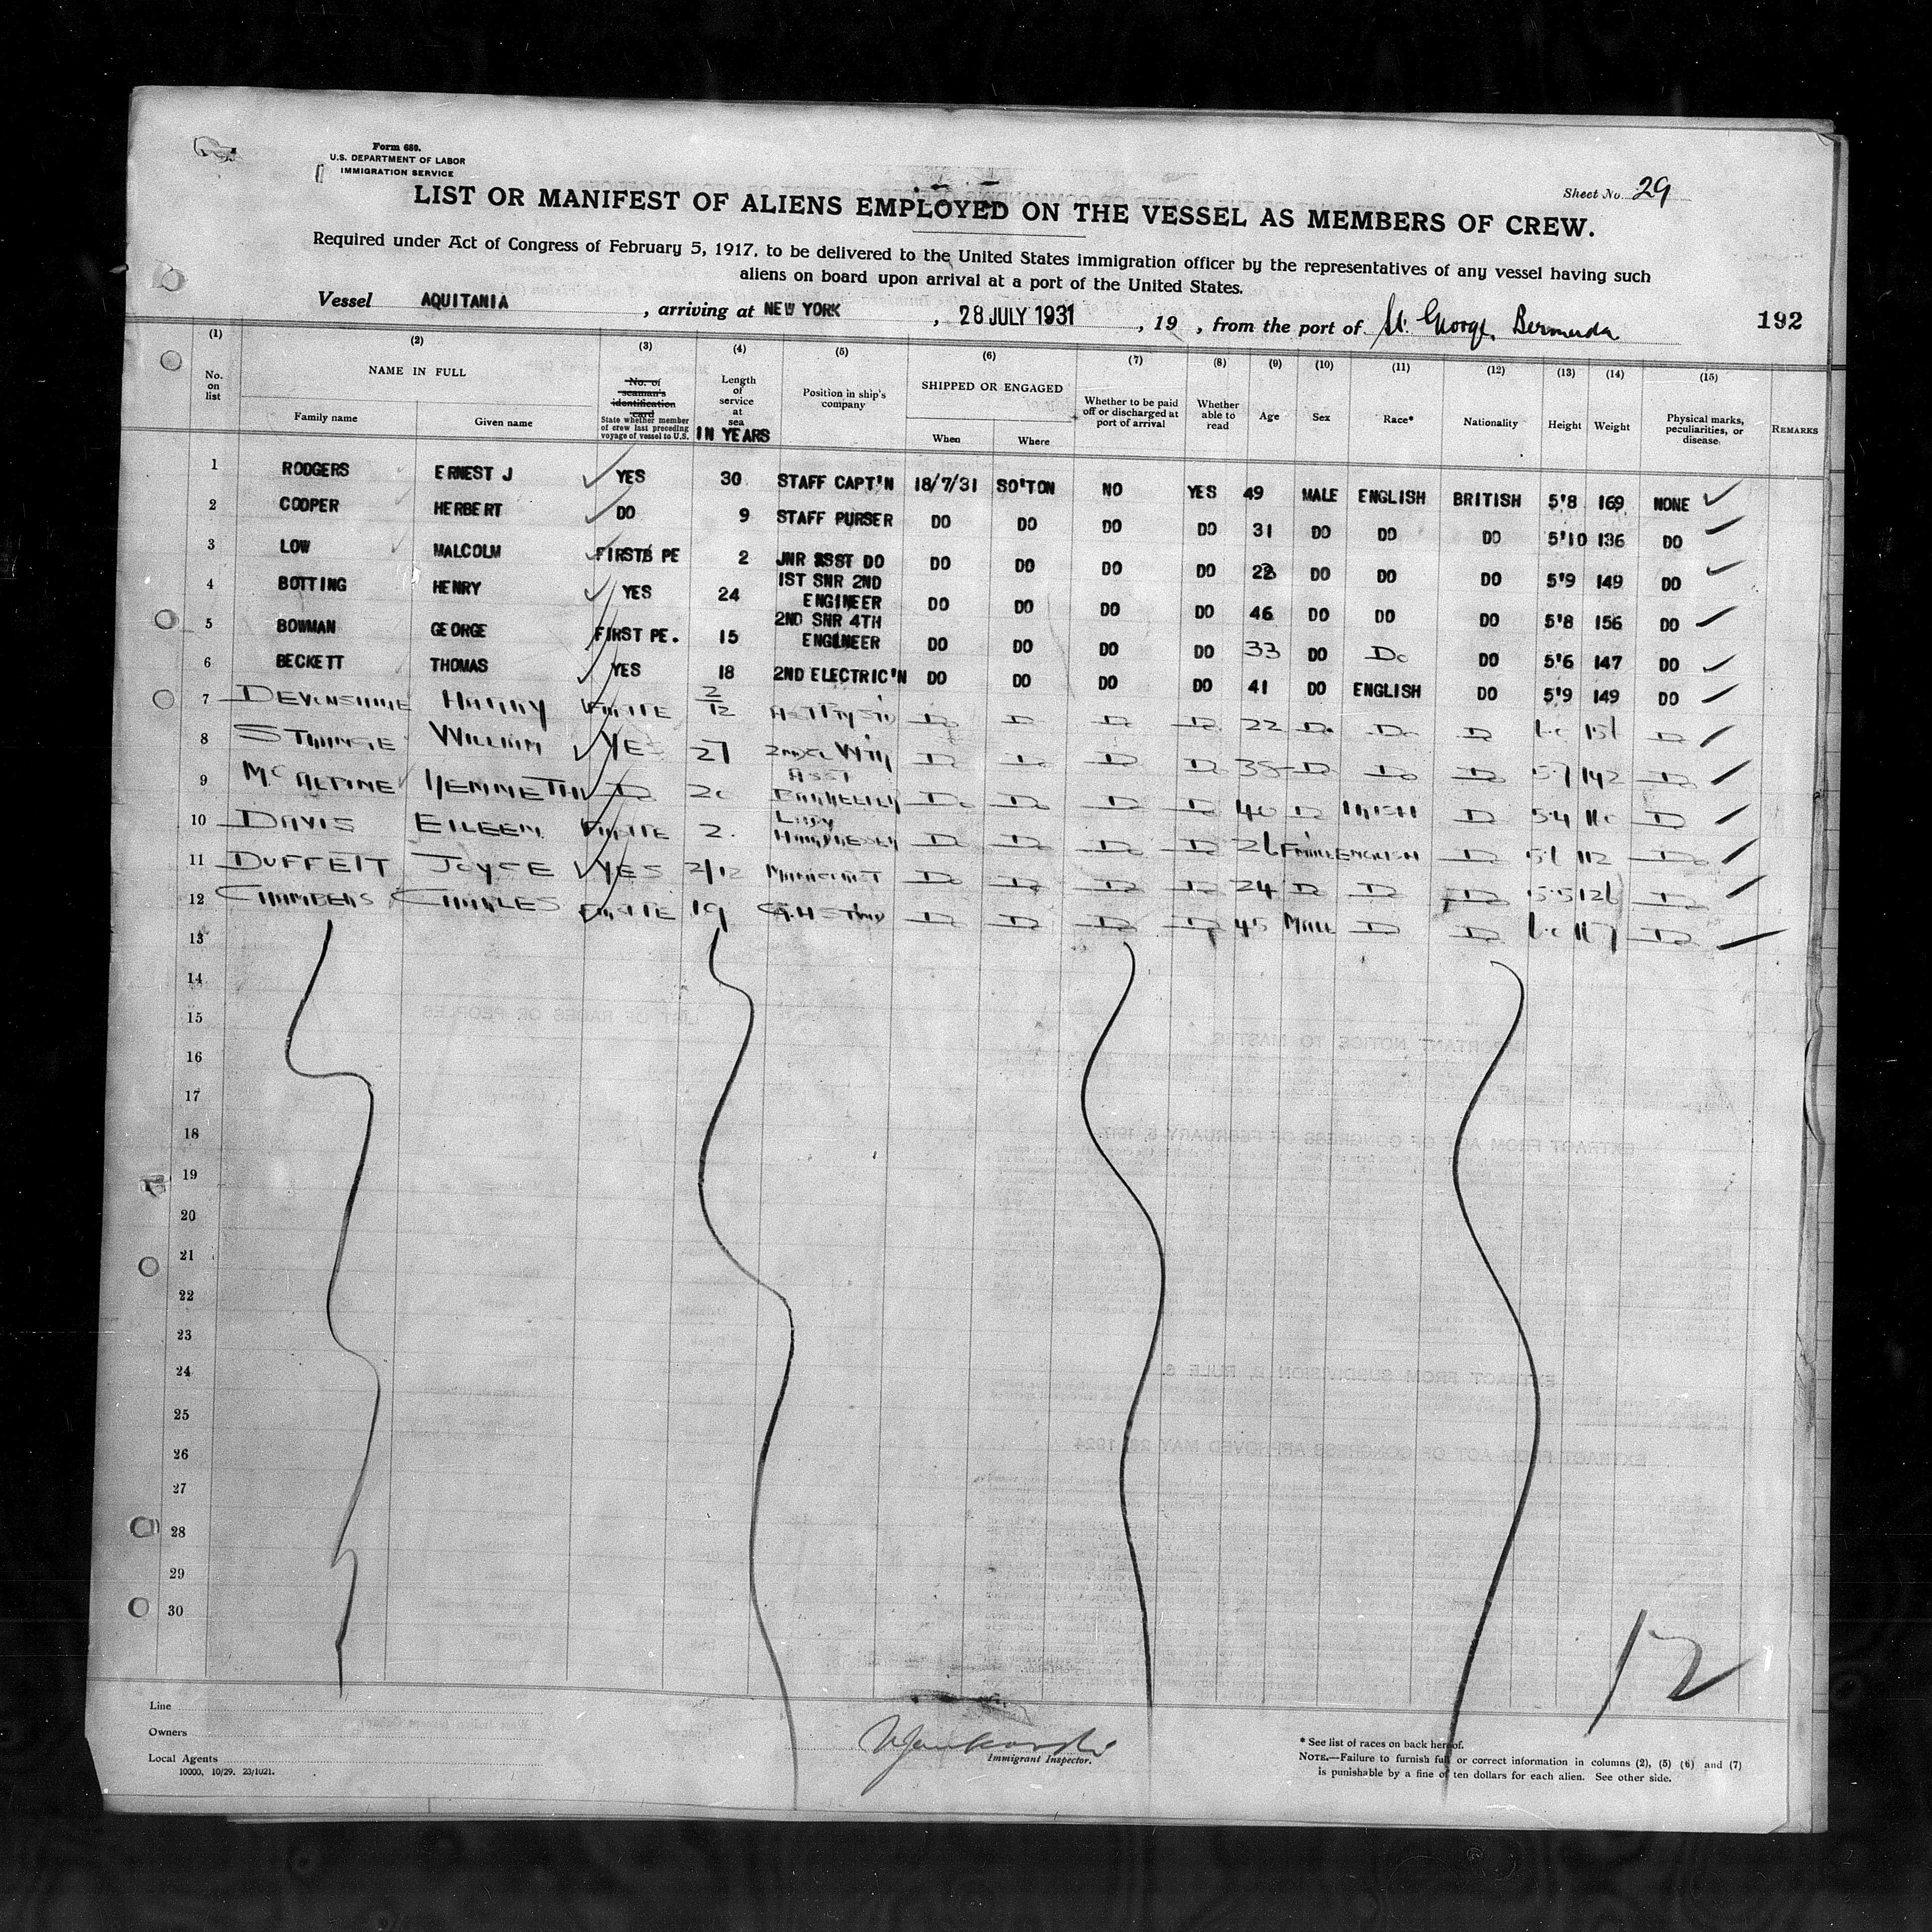 Form 680.
U.S. DEPARTMENT OF LABOR
IMMIGRATION SERVICE
Sheet No. 29
LIST OR MANIFEST OF ALIENS EMPLOYED ON THE VESSEL AS MEMBERS OF CREW.
Required under Act of Congress of February 5, 1917, to be delivered to the United States immigration officer by the representatives of any vessel having such
aliens on board upon arrival at a port of the United States.
Vessel AQUITANIA, arriving at NEW YORK, 28 JULY 1931, 19 , from the port of St. George, Bermuda
192
(1) (2) (3) (4) (5) (6) (7) (8) (9) (10) (11) (12) (13) (14) (15)
No. on list
NAME IN FULL
Family name
Given name
No. of seaman's identification card
State whether member of crew last preceding voyage of vessel to U.S.
Length of service at sea
IN YEARS
Position in ship's company
SHIPPED OR ENGAGED
When
Where
Whether to be paid off or discharged at port of arrival
Whether able to read
Age
Sex
Race*
Nationality
Height
Weight
Physical marks, peculiarities, or disease.
REMARKS
1 RODGERS ERNEST J YES 30 STAFF CAPT'N 18/7/31 SO'TON NO YES 49 MALE ENGLISH BRITISH 5'8 169 NONE
2 COOPER HERBERT DO 9 STAFF PURSER DO DO DO DO 31 DO DO DO 5'10 136 DO
3 LOW MALCOLM 2 JNR ASST DO DO DO DO DO DO DO DO 5'9 149 DO
4 BOTTING HENRY YES 24 1ST SNR 2ND ENGINEER DO DO DO DO 46 DO DO DO 5'8 156 DO
5 BOWMAN GEORGE FIRST PE. 15 2ND SNR 4TH ENGINEER DO DO DO DO 33 DO Do DO 5'6 147 DO
6 BECKETT THOMAS YES 18 2ND ELECTRIC'N DO DO DO DO 41 DO ENGLISH DO 5'9 149 DO
7 DEVONSHIRE HARRY 2/12 Do D D D 22 D. Do D D
8 WILLIAM YES 27 D Do D D D Do D 5.7 142 D
9 McALPINE KENNETH D Do Do D D 40 D IRISH D 5.4 D
10 DAVIS EILEEN 2. D D Do D 26 ENGLISH D 112 Do
11 DUFFETT JOYCE YES 2/12 Do D D D 24 D D D 5.5 126 D
12 CHAMBERS CHARLES 19 D D D D 45 MALE D D D
13
14
15
16
17
18
19
20
21
22
23
24
25
26
27
28
29
30
12
Line
Owners
Local Agents
10000, 10/29. 23/1021.
Immigrant Inspector.
* See list of races on back hereof.
NOTE.—Failure to furnish full or correct information in columns (2), (5) (6) and (7)
is punishable by a fine of ten dollars for each alien. See other side.